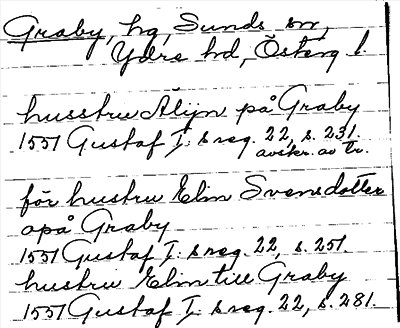 Graby, hg, Sunds sn,
Ydre hd, Österg l.
husstru Älijn på Graby
1551 Gustaf I: s reg. 22, s. 231.
avskr. av tr.
för hustru Elin Svensdotter
opå Graby
1551 Gustaf I: s reg. 22, s. 251
hustru Elin till Graby
1551 Gustaf I: s reg. 22, s. 281.